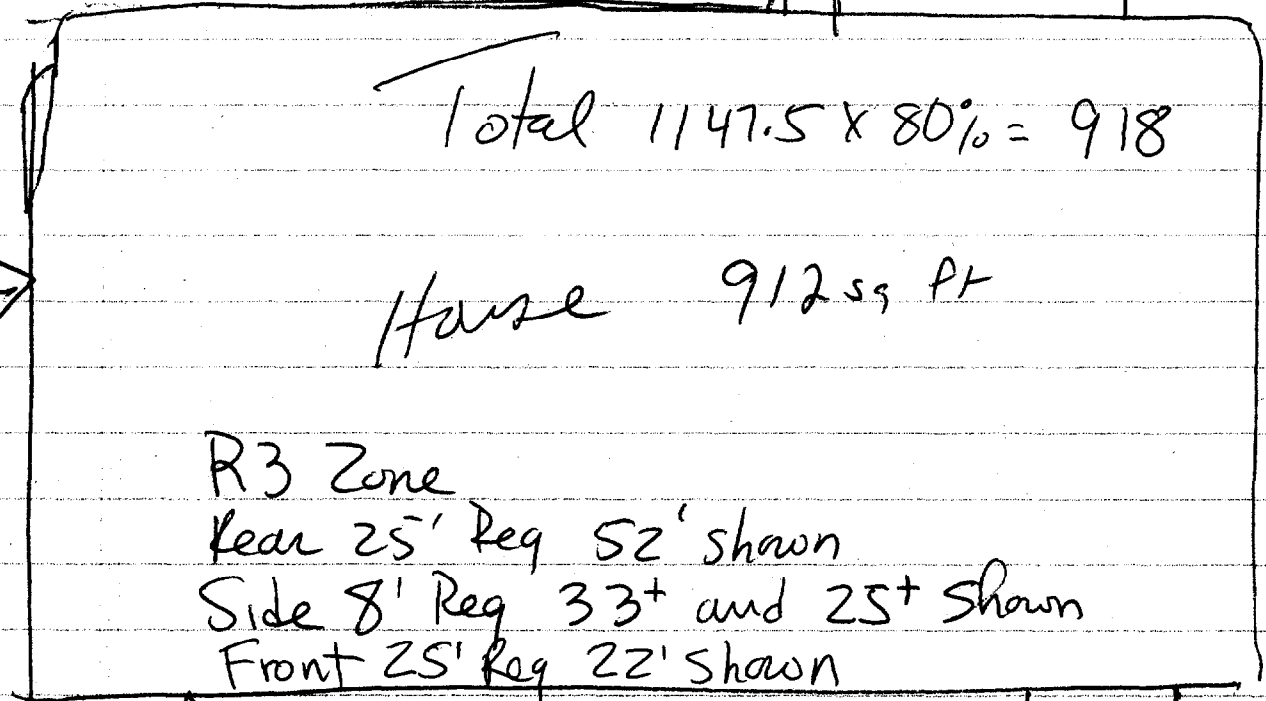 Total 1147.5 x 80% = 918
House 912 sq ft
R3 Zone
Rear 25' Req 52' shown
Side 8' Req 33+ and 25+ Shown
Front 25' Req 22' Shown